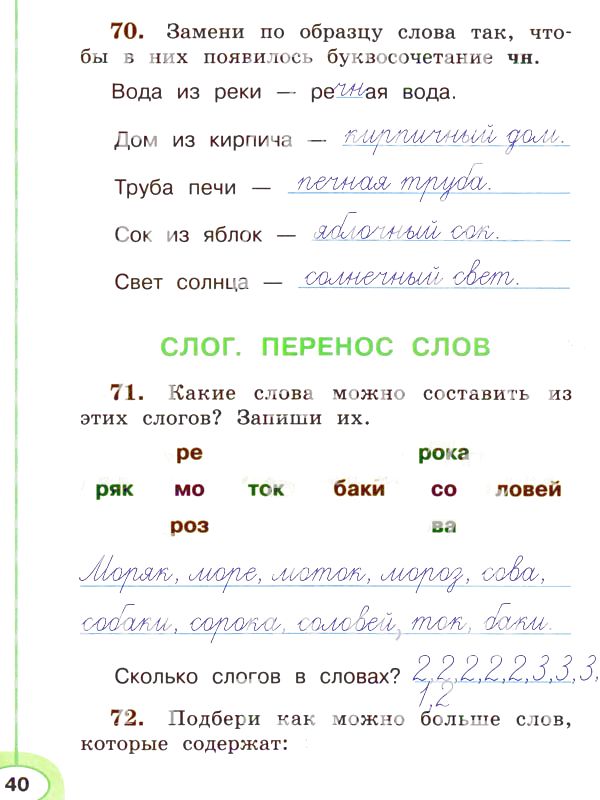 70. Замени по образцу слова так, что-
бы в них появилось буквосочетание чн.
Вода из реки — речная вода.
Дом из кирпича — кирпичный дом.
Труба печи — печная труба.
Сок из яблок — яблочный сок.
Свет солнца — солнечный свет.
СЛОГ. ПЕРЕНОС СЛОВ
71. Какие слова можно составить из
этих слогов? Запиши их.
ре рока
ряк мо ток баки со ловей
роз ва
Моряк, море, моток, мороз, сова,
собаки, сорока, соловей, ток, баки.
Сколько слогов в словах? 2,2,2,2,2,3,3,3,
1,2
72. Подбери как можно больше слов,
которые содержат:
40